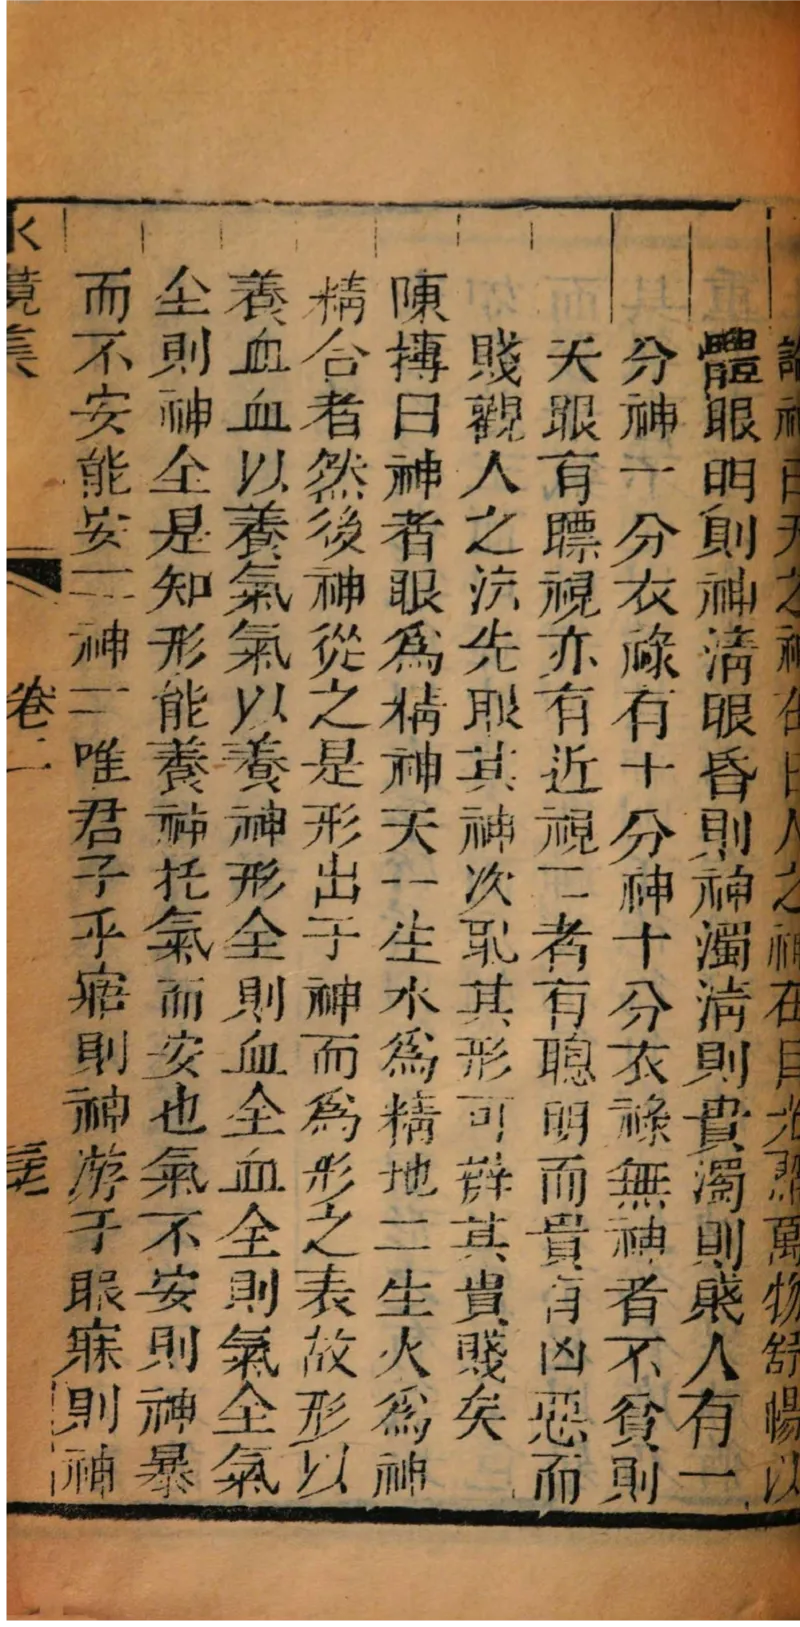 神由天之神在日人之神在目光照萬物舒暢以
體眼明則神淸眼昏則神濁淸則貴濁則賤人有一
分神一分衣祿有十分神十分衣祿無神者不貧則
夭眼有瞟視亦有近視二者有聰明而貴有凶惡而
賤觀人之法先取其神次恥其形可辯其貴賤矣
陳摶曰神者眼爲精神天一生水爲精地二生火爲神
精合者然後神從之是形出于神而爲形之表故形以
養血血以養氣氣以養神形全則血全血全則氣全氣
全則神全是知形能養神托氣而安也氣不安則神暴
而不安能安一神一唯君子乎寤則神游于眼寐則神
水鏡集
卷二